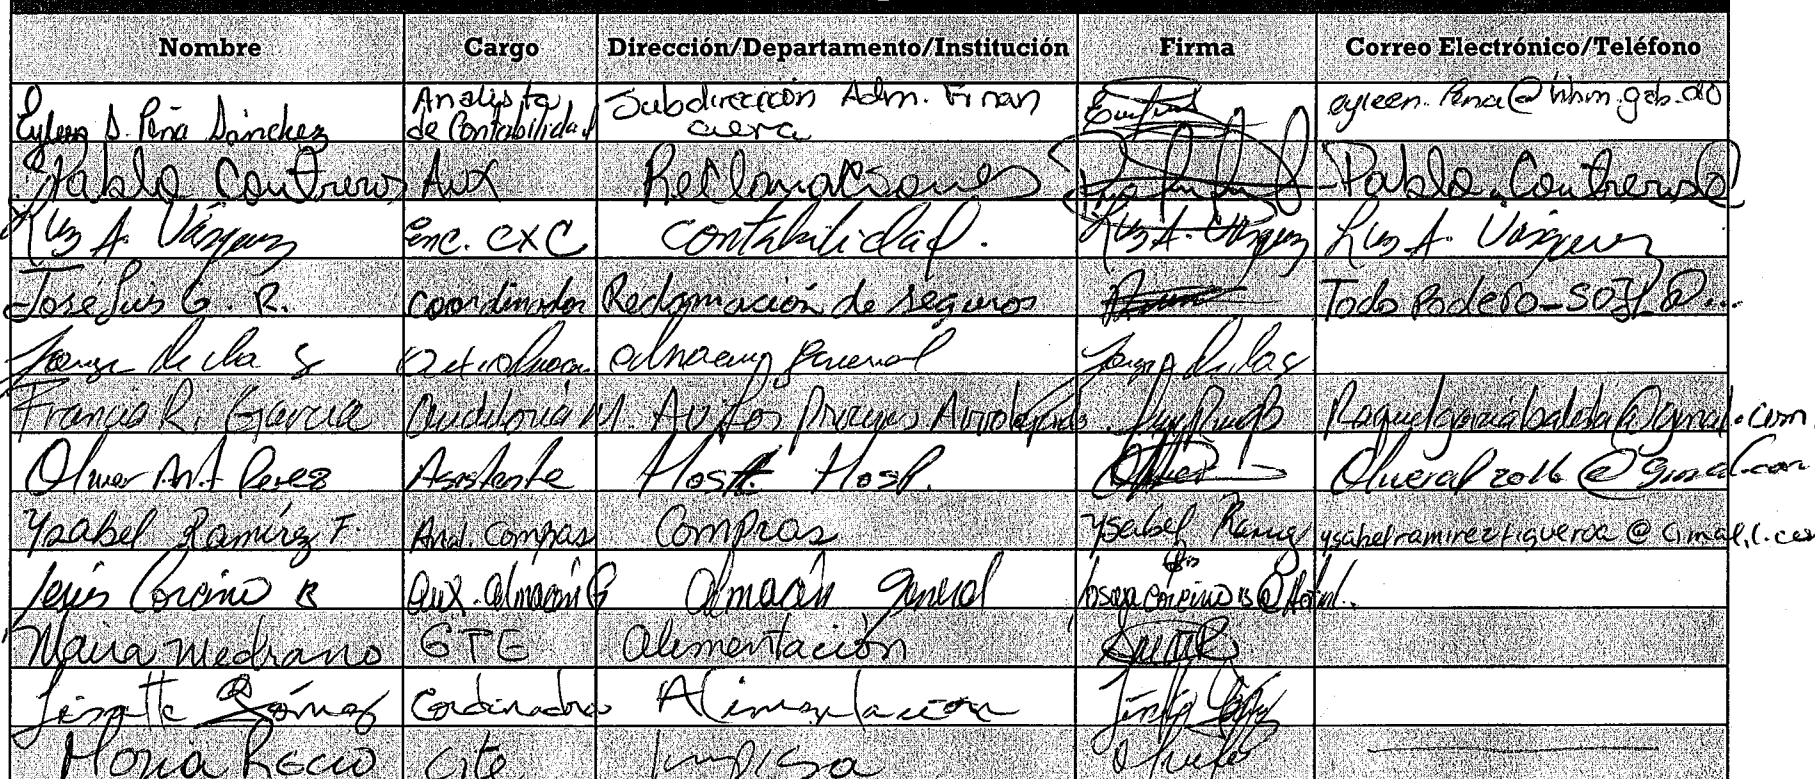 Nombre Cargo Dirección/Departamento/Institución Firma Correo Electrónico/Teléfono
Eyleen D. Peña Sánchez Analista de Contabilidad Subdirección Adm. Finan ciera eyleen.Pena@hhm.gob.do
Pablo Contreras Aux Reclamaciones Pablo.Contreras@
Luz A. Vásquez Enc. CXC Contabilidad. Luz A. Vásquez Luz A. Vásquez
José Luis G. R. Coordinador Reclamación de seguros Todo Podero-SOJL@...
de la Almacen General
Francia R. Garcia Auditoria M.
Oliver Ant Perez Asistente Host. Hosp. Oliveral2016@gmail.com
Ysabel Ramírez F. Anal. Compras Compras Ysabel ysabelramirezfigueroa@Gmail.com
Jesús Corcino B Aux. Almacén G Almacén General
Maira Medrano GTE Alimentación
Lissette Gómez Cordinadora Alimentacion
Maria Recio